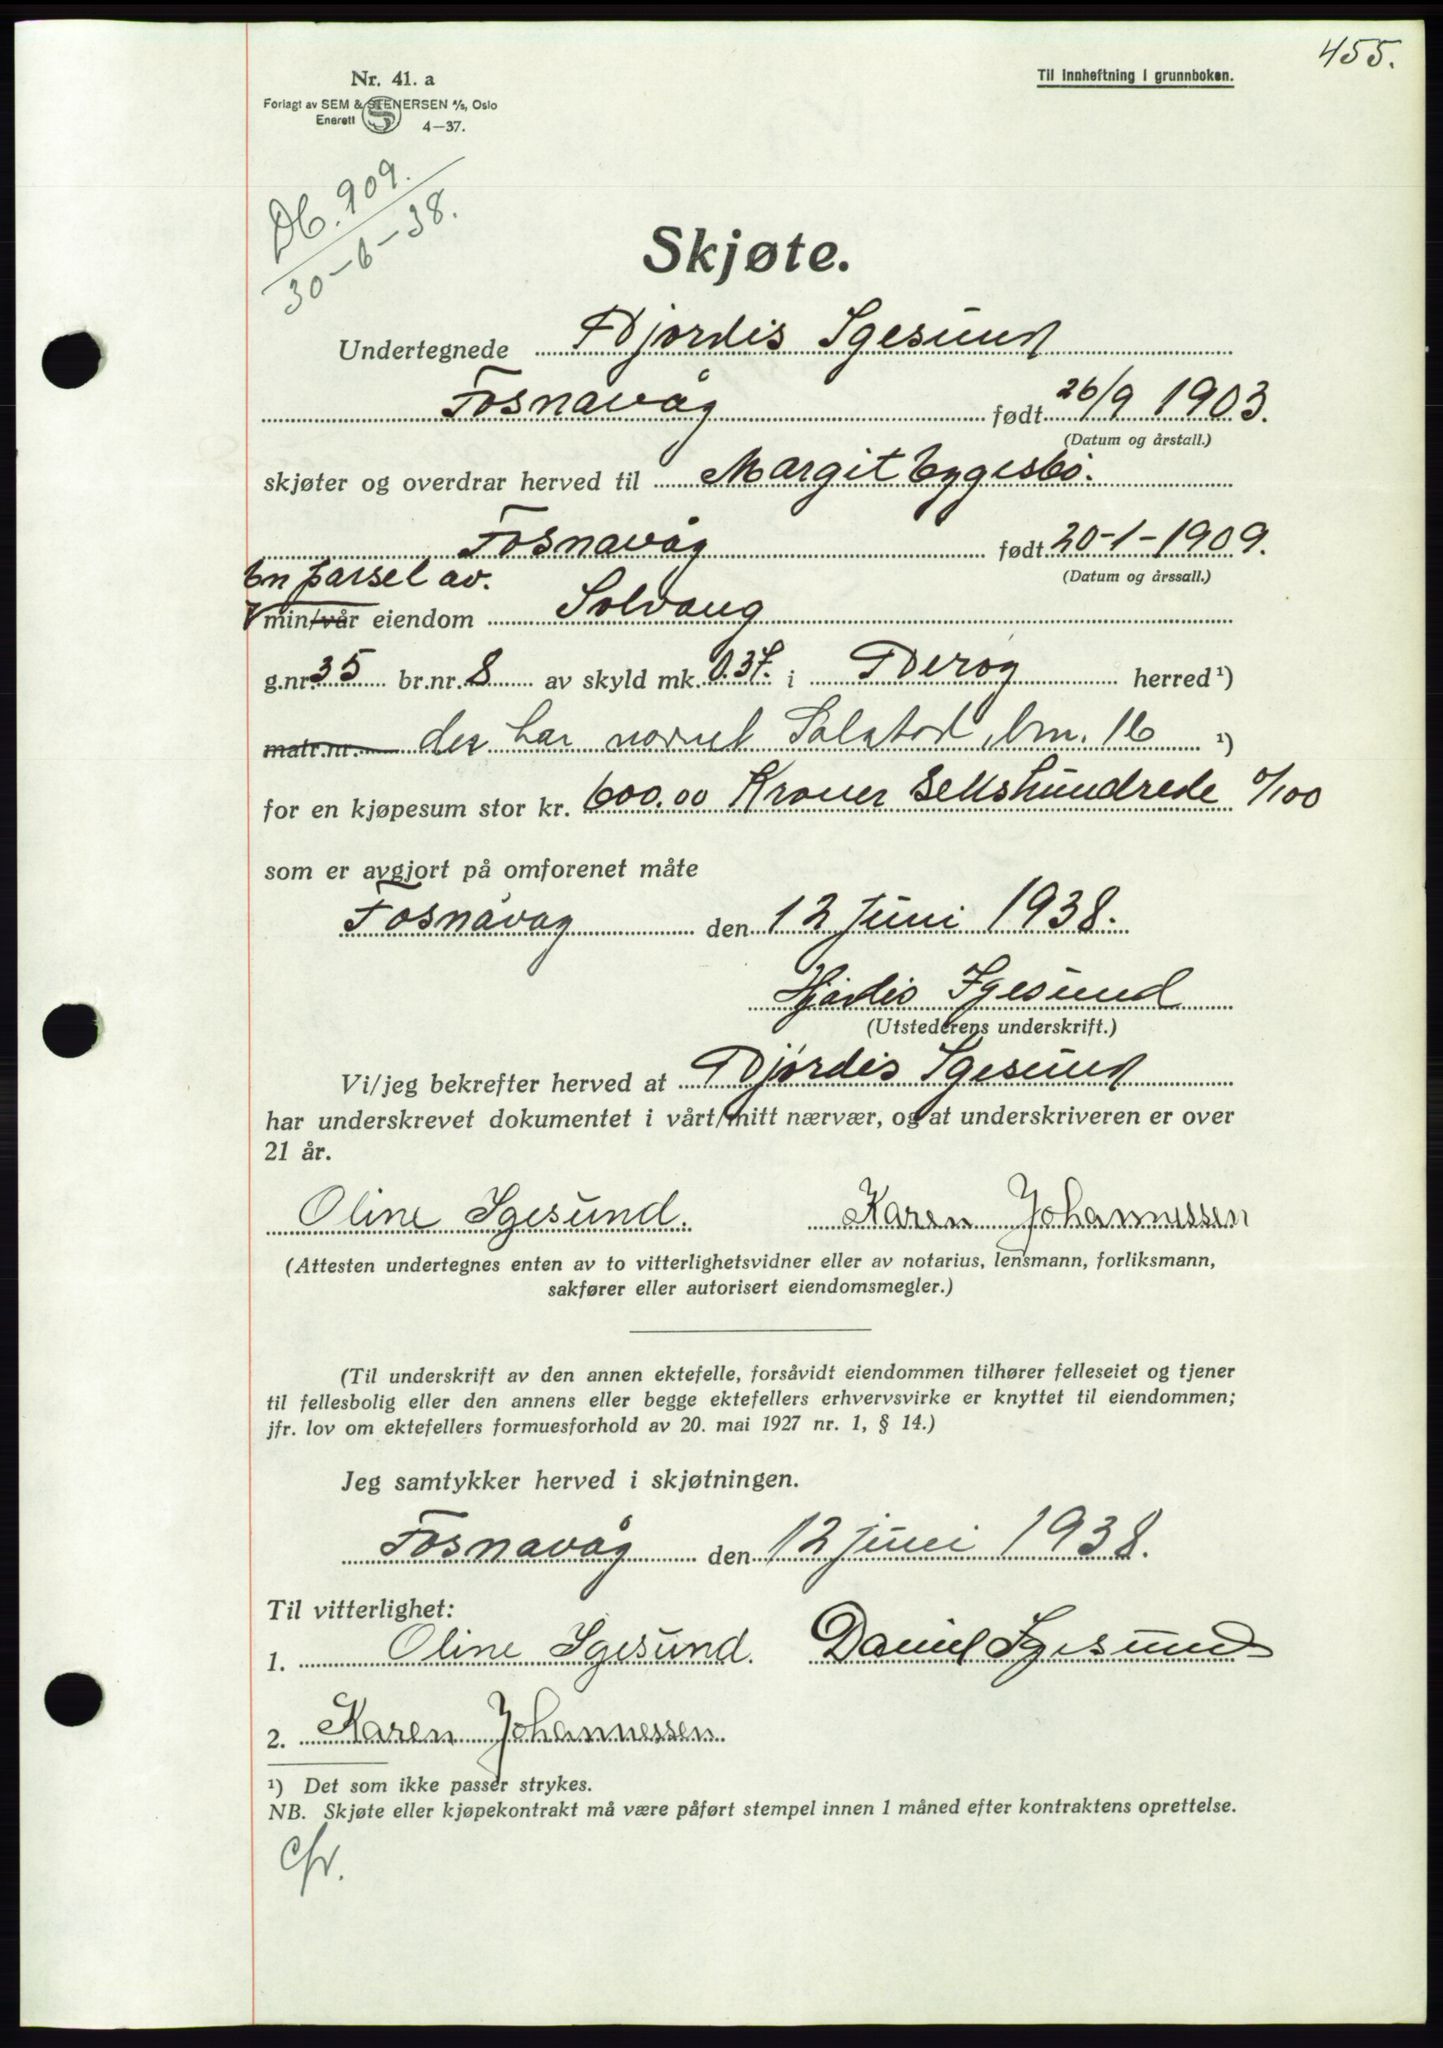 455.
Nr. 41. a
Til innheftning i grunnboken.
Forlagt av SEM & STENERSEN A/S, Oslo
Enerett
4—37.
Db. 909.
30-6-38.
Skjøte.
Undertegnede Hjørdis Igesund
Fosnavåg født 26/9 1903.
(Datum og årstall.)
skjøter og overdrar herved til Margit Eggesbö.
Fosnavåg født 20-1-1909.
(Datum og årssall.)
En parsel av.
min/vår eiendom Solvang
g.nr. 35 br.nr. 8 av skyld mk. 0.37. i Herøy herred ¹)
matr.nr. der har navnet Solstad, bnr. 16 ¹)
for en kjøpesum stor kr. 600.00 Kroner Sekshundrede 0/100
som er avgjort på omforenet måte
Fosnavåg den 12 Juni 1938.
Hjørdis Igesund
(Utstederens underskrift.)
Vi/jeg bekrefter herved at Hjørdis Igesund
har underskrevet dokumentet i vårt/mitt nærvær, og at underskriveren er over
21 år.
Oline Igesund. Karen Johannessen
(Attesten undertegnes enten av to vitterlighetsvidner eller av notarius, lensmann, forliksmann,
sakfører eller autorisert eiendomsmegler.)
(Til underskrift av den annen ektefelle, forsåvidt eiendommen tilhører felleseiet og tjener
til fellesbolig eller den annens eller begge ektefellers erhvervsvirke er knyttet til eiendommen;
jfr. lov om ektefellers formuesforhold av 20. mai 1927 nr. 1, § 14.)
Jeg samtykker herved i skjøtningen.
Fosnavåg den 12 juni 1938.
Til vitterlighet:
1. Oline Igesund. Daniel Igesund
2. Karen Johannessen
¹) Det som ikke passer strykes.
NB. Skjøte eller kjøpekontrakt må være påført stempel innen 1 måned efter kontraktens oprettelse.